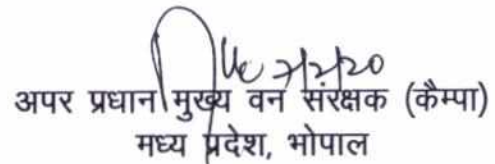 7/2/20
अपर प्रधान मुख्य वन संरक्षक (कैम्पा)
मध्य प्रदेश, भोपाल